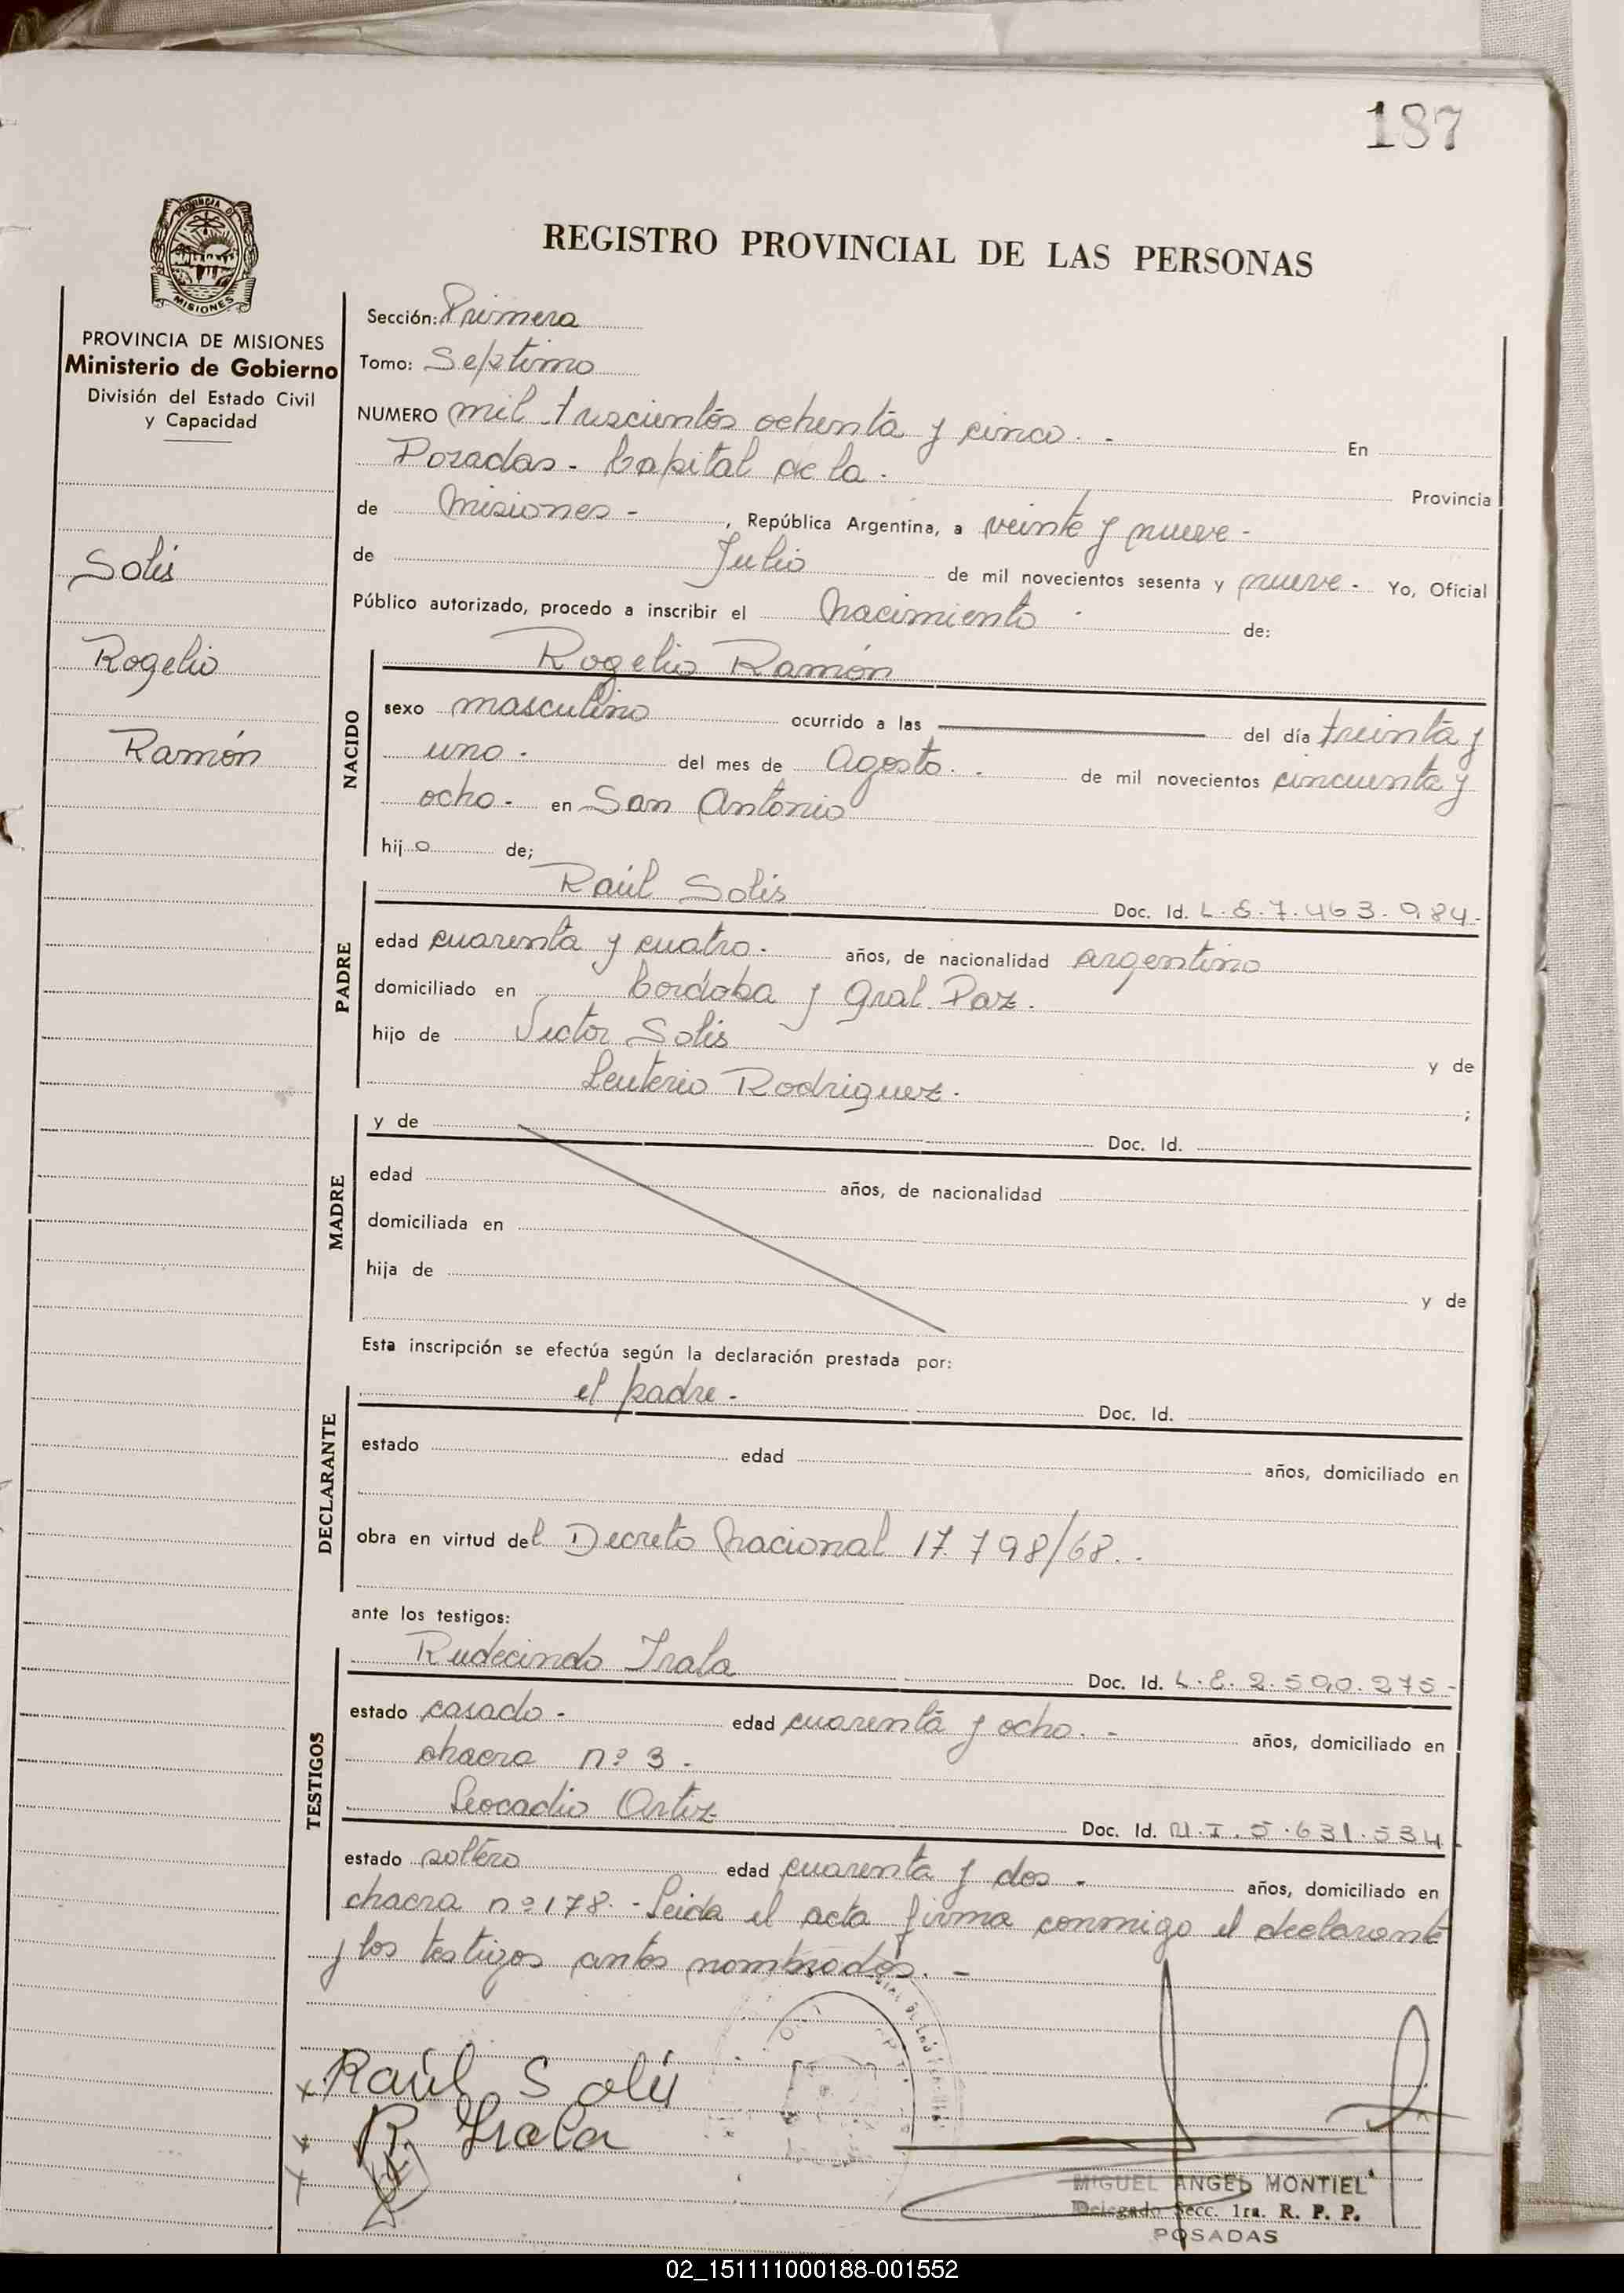 187
REGISTRO PROVINCIAL DE LAS PERSONAS
PROVINCIA DE MISIONES
Ministerio de Gobierno
División del Estado Civil
y Capacidad
Solis
Rogelio
Ramón
Sección: Primera
Tomo: Septimo
NUMERO mil trescientos ochenta y cinco. - En
Posadas - Capital de la - Provincia
de Misiones - , República Argentina, a veinte y nueve -
de Julio de mil novecientos sesenta y nueve - Yo, Oficial
Público autorizado, procedo a inscribir el Nacimiento - de:
NACIDO
Rogelio Ramón
sexo masculino ocurrido a las del día treinta y
uno - del mes de Agosto. - de mil novecientos cincuenta y
ocho - en San Antonio
hijo de;
PADRE
Raúl Solis Doc. Id. L.E. 7.463.984-
edad cuarenta y cuatro - años, de nacionalidad argentino
domiciliado en Cordoba y Gral Paz.
hijo de Victor Solis y de
Leuterio Rodriguez - ;
MADRE
y de Doc. Id.
edad años, de nacionalidad
domiciliada en
hija de y de
Esta inscripción se efectúa según la declaración prestada por:
DECLARANTE
el padre - Doc. Id.
estado edad años, domiciliado en
obra en virtud del Decreto Nacional 17.798/68. -
ante los testigos:
TESTIGOS
Rudecindo Irala Doc. Id. L.E. 2.590.275-
estado casado - edad cuarenta y ocho. - años, domiciliado en
chacra nº 3 -
Leocadio Ortiz Doc. Id. M.I. 5.631.534
estado soltero edad cuarenta y dos - años, domiciliado en
chacra nº 178. - Leida el acta firma conmigo el declarante
y los testigos antes nombrados. -
x Raúl Solis
x R. Irala
x
MIGUEL ANGEL MONTIEL
Delegado Secc. 1ra. R. P. P.
POSADAS
02_151111000188-001552